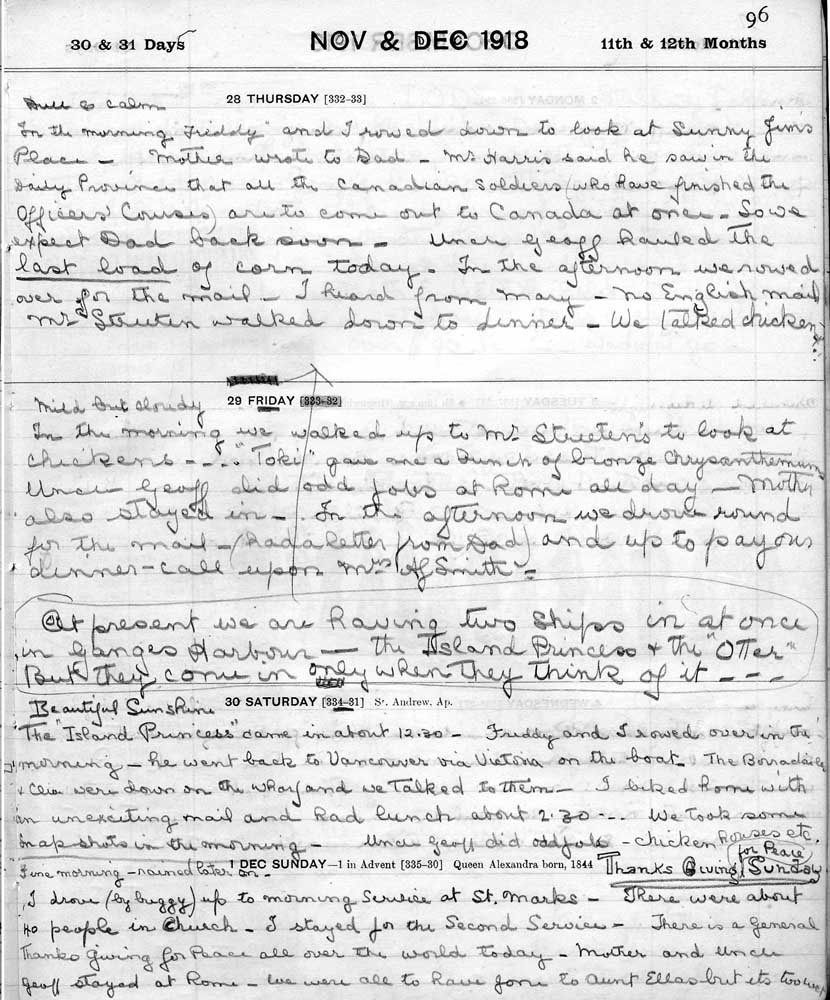 96
30 & 31 Days NOV & DEC 1918 11th & 12th Months
Dull & calm 28 THURSDAY [332-33]
In the morning "Freddy" and I rowed down to look at Sunny Jim's
Place - Mother wrote to Dad - Mr Harris said he saw in the
Daily Province that all the Canadian Soldiers (who have finished the
Officers' Courses) are to come out to Canada at once - So we
expect Dad back soon - Uncle Geoff hauled the
last load of corn today. In the afternoon we rowed
over for the mail - I heard from Mary - no English mail
Mr Streeten walked down to dinner - We talked chicken
Mild but cloudy 29 FRIDAY [333-32]
In the morning we walked up to Mr Streeten's to look at
chickens - - - "Toki" gave me a bunch of bronze Chrysanthemums
Uncle Geoff did odd jobs at home all day - Mother
also stayed in - In the afternoon we drove round
for the mail - (had a letter from Dad) and up to pay our
dinner-call upon Mrs A G Smith -
At present we are having two ships in at once
in Ganges Harbour - the Island Princess & the "Otter"
But they come in only when they think of it - - -
Beautiful Sunshine 30 SATURDAY [334-31] St. Andrew, Ap.
The "Island Princess" came in about 12.30 - Freddy and I rowed over in the
morning - he went back to Vancouver via Victoria on the boat. The Borradailes
& Cleia were down on the wharf and we talked to them - I biked home with
an unexciting mail and had lunch about 2.30 - - - We took some
snap shots in the morning - Uncle Geoff did odd jobs - chicken houses etc.
1 DEC SUNDAY—1 in Advent [335-30] Queen Alexandra born, 1844 Thanks Giving (for Peace) Sunday
Fine morning - rained later on -
I drove (by buggy) up to morning Service at St. Marks - There were about
40 people in Church - I stayed for the Second Service - There is a General
Thanks Giving for Peace all over the world today - Mother and Uncle
Geoff stayed at home - We were all to have gone to Aunt Ellas but its too wet